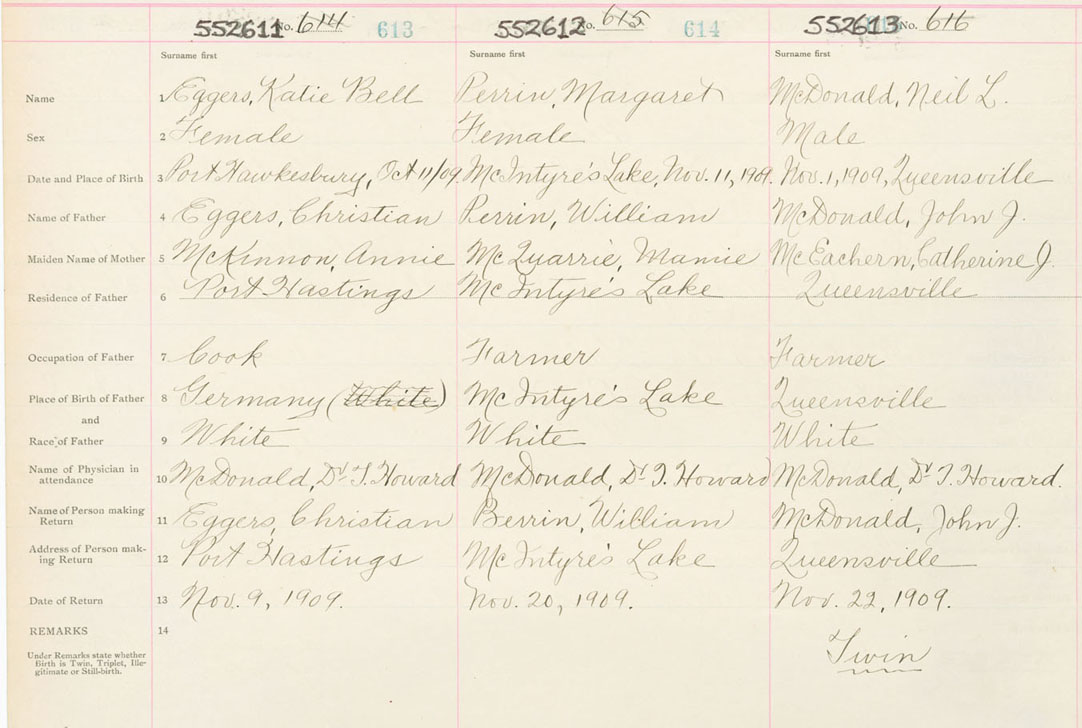 552611 No. 614 613 552612 No. 615 614 552613 No. 616
Surname first Surname first Surname first
Name 1 Eggers, Katie Bell Perrin, Margaret McDonald, Neil L.
Sex 2 Female Female Male
Date and Place of Birth 3 Port Hawkesbury, Oct 11/09. McIntyre's Lake, Nov. 11, 1909. Nov. 1, 1909, Queensville
Name of Father 4 Eggers, Christian Perrin, William McDonald, John J.
Maiden Name of Mother 5 McKinnon, Annie McQuarrie, Mamie McEachern, Catherine J.
Residence of Father 6 Port Hastings McIntyre's Lake Queensville
Occupation of Father 7 Cook Farmer Farmer
Place of Birth of Father 8 Germany (White) McIntyre's Lake Queensville
and
Race of Father 9 White White White
Name of Physician in
attendance 10 McDonald, Dr. T. Howard McDonald, Dr. T. Howard McDonald, Dr. T. Howard.
Name of Person making
Return 11 Eggers, Christian Berrin, William McDonald, John J.
Address of Person mak-
ing Return 12 Port Hastings McIntyre's Lake Queensville
Date of Return 13 Nov. 9, 1909. Nov. 20, 1909. Nov. 22, 1909.
REMARKS 14
Under Remarks state whether
Birth is Twin, Triplet, Ille-
gitimate or Still-birth.
Twin